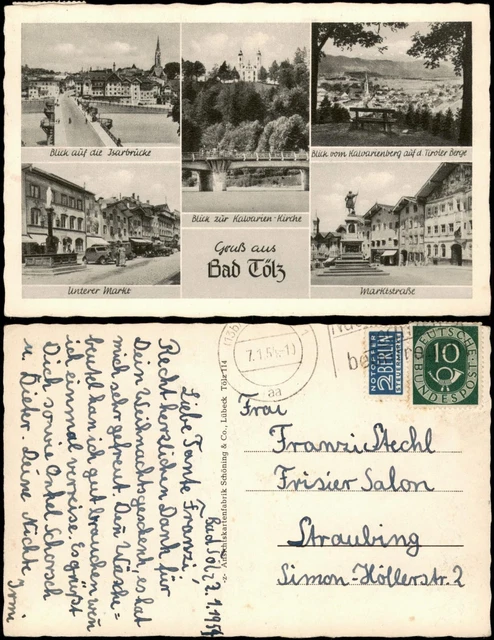 Blick auf die Isarbrücke
Blick zur Kalvarien-Kirche
Blick vom Kalvarienberg auf d. Tiroler Berge
Unterer Markt
Gruß aus
Bad Tölz
Marktstraße
Bad Tölz 2.1.1954
Liebe Tante Franzi,
Recht herzlichen Dank für
Dein Weihnachtsgeschenk, es hat
mich sehr gefreut. Den Wäsche-
beutel kan ich gut brauchen wen
ich einmal verreise. Es grüßt
Dich sowie Onkel Schorsch
u. Dieter. Deine Nichte
Irmi
-z- Ansichtskartenfabrik Schöning & Co., Lübeck Tölz 114
7.1.5
aa
NOTOPFER
2 BERLIN
STEUERMARKE
DEUTSCHE
BUNDESPOST
10
Frau
Franzi Stechl
Frisier Salon
Straubing
Simon-Höllerstr. 2